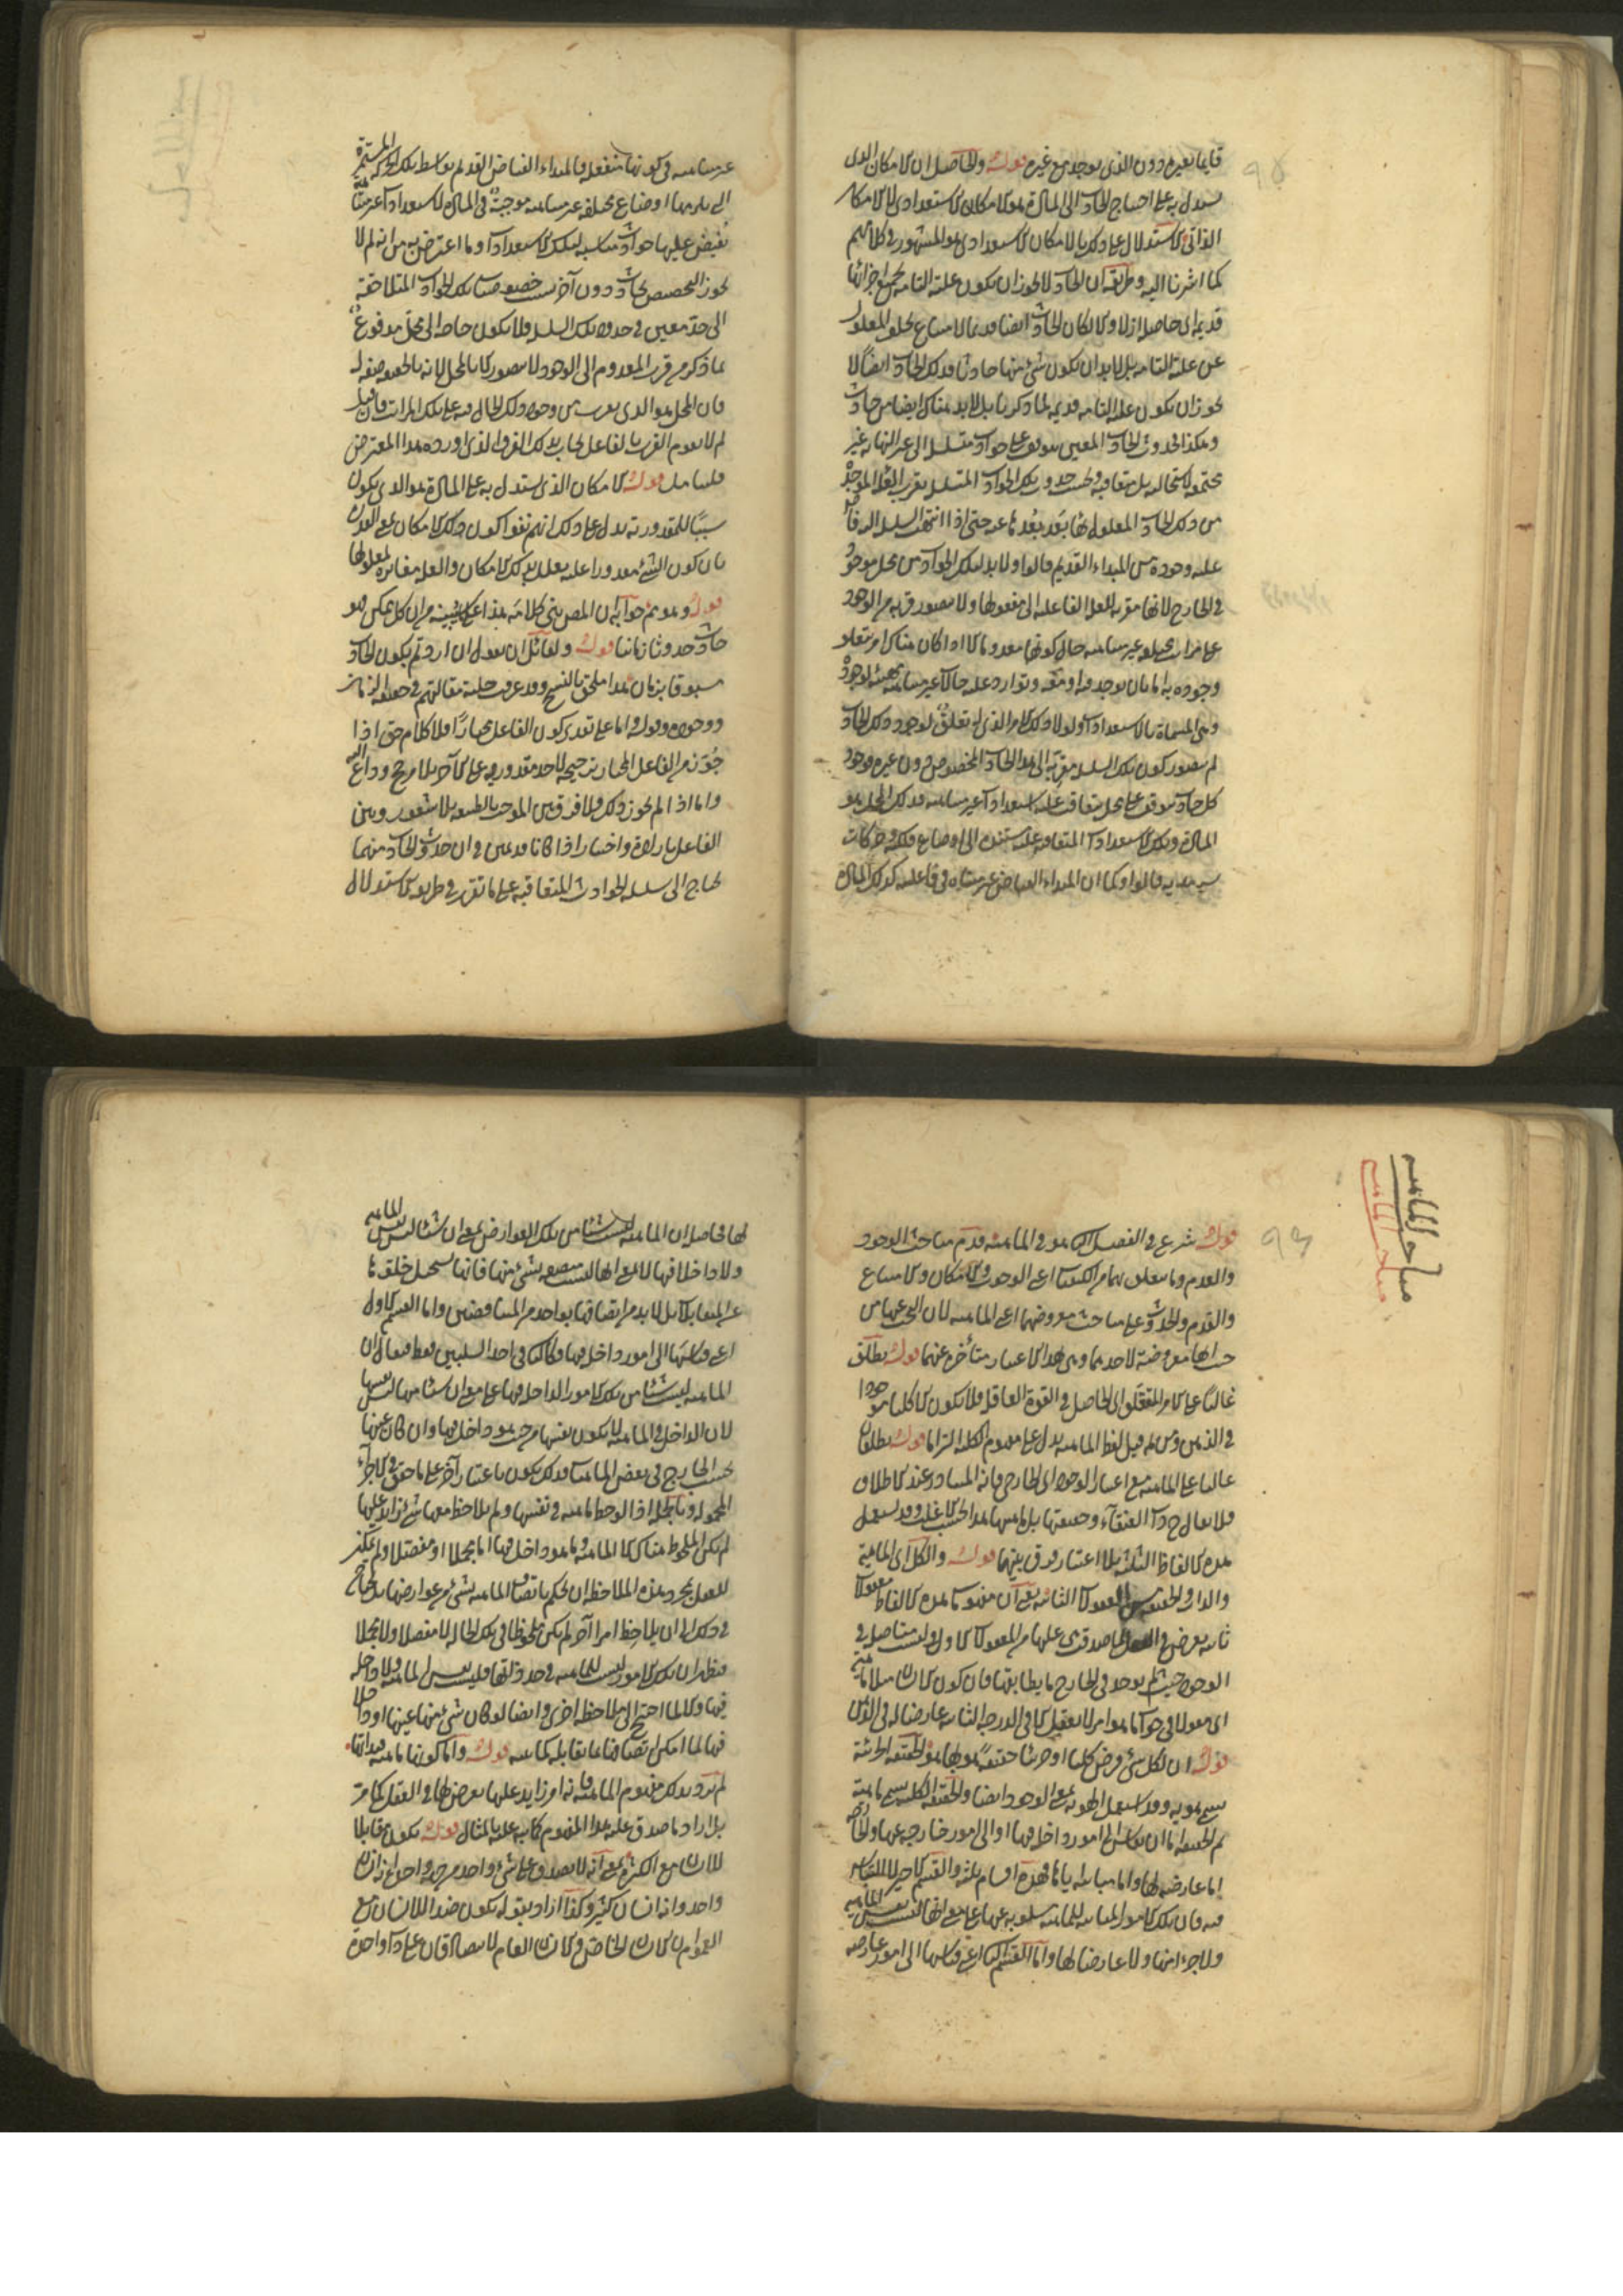 قايما بغيره دون الذي يوجد مع غيره قوله والحاصل ان الامكان الذي
يستدل به على احتياج الحادث الى المادة هو الامكان الاستعدادي لا الامكان
الذاتي والاستدلال على ذلك بالامكان الاستعدادي هو المشهور في كلامهم
كما اشرنا اليه وطريقه ان الحادث لا يجوز ان يكون علته التامة بجميع اجزائها
قديمة اي حاصلة ازلا والا لكان الحادث ايضا قديما لامتناع تخلف المعلول
عن علته التامة بل لا بد ان يكون شيء منها حادثا فذلك الحادث ايضا لا
يجوز ان يكون علته التامة قديمة لما ذكرنا بل لا بد هناك ايضا من حادث
وهكذا فحدوث الحادث المعين يتوقف على حوادث متسلسلة الى غير النهاية غير
مجتمعة لاستحالته بل متعاقبة وبحسب حدوث تلك الحوادث المتسلسلة يقرب العلة الموجدة
من ذلك الحادث المعلول لها بعد بعدها عنه حتى اذا انتهت السلسلة اليه فاض
عليه وجوده من المبداء القديم قالوا ولا بد لتلك الحوادث من محل موجود
في الخارج لانها مقربة للعلة الفاعلة الى مفعولها ولا يتصور قربه من الوجود
على مراتب مختلفة غير متناهية حال كونها معدوما الا اذا كان هناك امر يتعلق
وجوده به اما بان يوجد فيه او معه وتوارد عليه حالات غير متناهية مهيئة لوجوده
وهي المسماة بالاستعدادات ولولا ذلك الامر الذي له تعلق لوجود ذلك الحادث
لم يتصور كون تلك السلسلة مقربة الى هذا الحادث المخصوص دون غيره فوجود
كل حادث موقوف على محل يتعاقب عليه استعدادات غير متناهية فذلك المحل هو
المادة وتلك الاستعدادات المتعاقبة عليه مستندة الى اوضاع فلكية وحركات
سرمدية قالوا وكما ان المبداء الفياض غير متناه في فاعليته كذلك المادة
غير متناهية في كونها منفعلة فالمبداء الفياض القديم بواسطة تلك الحركة المستمرة
الى يلزمها اوضاع مختلفة غير متناهية موجبة في المادة لاستعدادات غير متناهية
يفيض عليها حوادث مناسبة لتلك الاستعدادات وما اعترض به من انه لم لا
يجوز التخصيص بحادث دون آخر بسبب خصوصيات تلك الحوادث المتلاحقة
الى حد معين في حدوث تلك السلسلة فلا يكون حاجة الى محل مدفوع
بما ذكر من قرب المعدوم الى الوجود لا يتصور الا بالمحل لانه بالحقيقة صفة له
فان المحل هو الذي يقرب من وجود ذلك الحال فيه على تلك المراتب فان قيل
لم لا يقوم القرب بالفاعل يجاب بذلك الفرق الذي اورده هذا المعترض
فليتامل قوله الامكان الذي يستدل به على المادة هو الذي يكون
سببا للمقدورية يدل على ذلك انهم نفوا كون ذلك الامكان نفس القدرة
بان كون الشيء مقدورا عليه يعلل بذلك الامكان والعلة مغايرة لمعلولها
قوله وهو هم جوابه ان المص بنى كلامه هذا على ما بينه من ان كل ممكن فهو
حادث حدوثا زمانيا قوله ولقائل ان يقول ان اردتم بكون الحادث
مسبوقا بزمان هذا ملحق بالنسخ وقد عرفت حلية مقالتهم في حقيقة الزمان
ووجوده وقوله اما على تقدير كون الفاعل مختارا فلا كلام حق اذا
جوز من الفاعل المختار ترجيحه لاحد مقدوريه على الآخر بلا مرجح وداع اليه
واما اذا لم يجوز ذلك فلا فرق بين الموجب بالطبيعة بلا شعور وبين
الفاعل بارادة واختيار اذا كانا قديمين في ان حدوث الحادث منهما
يحتاج الى سلسلة الحوادث المتعاقبة على ما تقرر في طريق الاستدلال
مباحث الماهية
مباحث الماهية
قوله شرع في الفصل الثاني وهو في الماهية قدم مباحث الوجود
والعدم وما يتعلق بهما من الكيفيات اعني الوجوب والامكان والامتناع
والقدم والحدوث على مباحث معروضهما اعني الماهية لان البحث عنها من
حيث انها معروضة لاحدهما وهي بهذا الاعتبار متأخرة عنهما قوله يطلق
غالبا على الامر المتعقل اي الحاصل في القوة العاقلة فلا يكون الا كليا موجودا
في الذهن ومن ثم قيل لفظ الماهية يدل على مفهوم الكلية التزاما قوله يطلقان
غالبا على الماهية مع اعتبار الوجود اي الخارجي فانه المتبادر عند الاطلاق
فلا يقال ذات العنقاء وحقيقتها بل ماهيتها هذا بحسب الاغلب وقد يستعمل
هذه الالفاظ الثلثة بلا اعتبار فرق بينها قوله والكل اي الماهية
والذات والحقيقة من المعقولات الثانية يعني ان مفهومات هذه الالفاظ معقولات
ثانية يعرض في العقل لما صدقت هي عليها من المعقولات الاولى وليست متاصلة في
الوجود حيث لم يوجد في الخارج ما يطابقها فان كون الانسان مثلا ماهية
اي مقولا في جواب ما هو امر لا يعقل الا في الدرجة الثانية عارضا له في الذهن
قوله ان لكل شيء فرض كليا او جزئيا حقيقة هو بها هو فالحقيقة الجزئية
يسمى هوية وقد استعمل الهوية بمعنى الوجود ايضا والحقيقة الكلية يسمى ماهية
ثم الحقيقة اما ان يقاس الى امور داخلة فيها او الى امور خارجة عنها والخارجة
اما عارضة لها واما مباينة اياها فهذه اقسام ثلثة والقسم الاخير لا التباس
فيه فان تلك الامور المباينة للماهية مسلوبة عنها على معنى انها ليست نفس الماهية
ولا جزءا منها ولا عارضا لها واما القسم الثاني اعني قياسها الى امور عارضة
لها فحاصله ان الماهية ليست شيئا من تلك العوارض بمعنى ان شيئا ليس نفس الماهية
ولا داخلا فيها لا بمعنى انها ليست متصفة بشيء منها فانها يستحيل خلوها
عن المتقابلات بل لا بد من اتصافها بواحد من المتناقضين واما القسم الاول
اعني قياسها الى امور داخلة فيها فكالثاني في احد السلبين فقط فيقال ان
الماهية ليست شيئا من تلك الامور الداخلة فيها على معنى ان شيئا منها ليس نفسها
لان الداخل في الماهية لا يكون نفسها من حيث هو داخل فيها وان كان عينها
بحسب الخارج في بعض الماهيات فذلك يكون باعتبار آخر على ما حقق في الاجزاء
المحمولة وبالجملة اذا لوحظ ماهية في نفسها ولم يلاحظ معها شيء زايد عليها
لم يكن الملحوظ هناك الا الماهية وما هو داخل فيها اما مجملا او مفصلا ولم يمكن
للعقل بمجرد هذه الملاحظة ان يحكم باتصاف الماهية بشيء من عوارضها بل يحتاج
في ذلك الى ان يلاحظ امرا آخر لم يكن ملحوظا في تلك الحالة لا مفصلا ولا مجملا
فيظهر ان تلك الامور ليست للماهية في حد ذاتها فليست نفس الماهية ولا داخلة
فيها والا لما احتيج الى ملاحظة اخرى وايضا لو كان شيء منها عينها او داخلا
فيها لما امكن اتصافها بما يقابله كما سيأتي قوله واما كونها ماهية فبذاتها
لم يرد بذلك مفهوم الماهية فانه امر زايد عليها يعرض لها في العقل كما مر
بل اراد ما صدق عليه هذا المفهوم كما نبه عليه بالمثال قوله يكون مقابلا
للانسان مع الكثرة بمعنى انه لا يصدق على شيء واحد من جهة واحدة انه انسان
واحد وانه انسان كثير وكذا اراد بقوله يكون ضد اللانسان مع
العموم ان الانسان الخاص والانسان العام لا يتصادقان على ذات واحدة